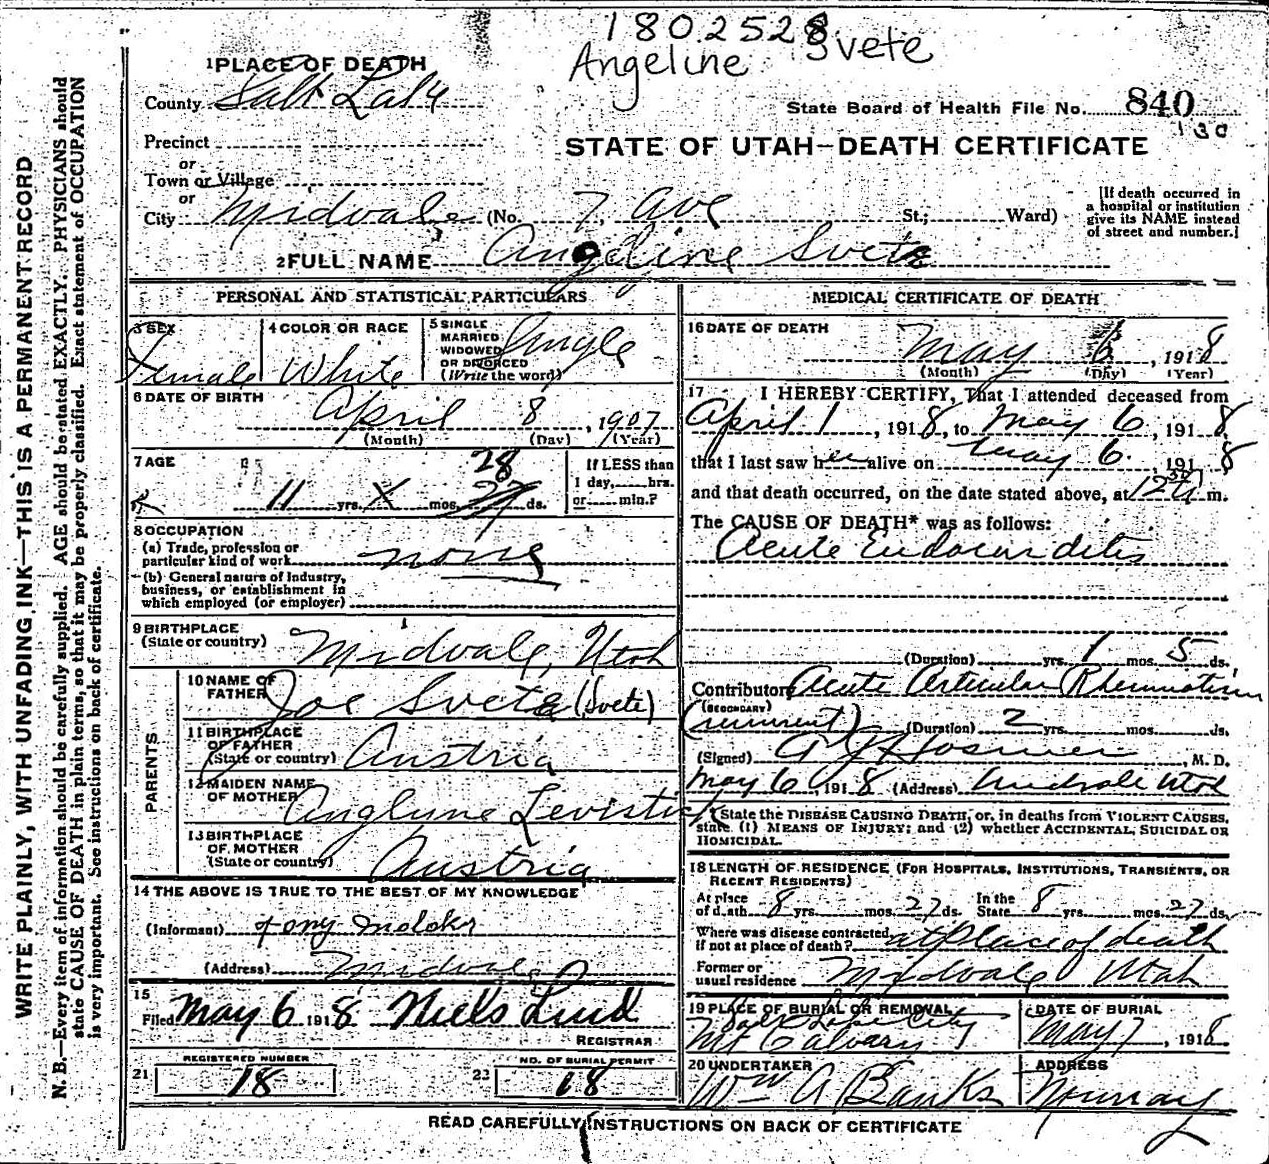 1802528
Angeline Svete
1 PLACE OF DEATH
County Salt Lake
State Board of Health File No. 840
130
Precinct
or
Town or Village
or
City Midvale (No. 7, Ave St.; Ward)
STATE OF UTAH—DEATH CERTIFICATE
[If death occurred in a hospital or institution give its NAME instead of street and number.]
2 FULL NAME Angeline Svete
PERSONAL AND STATISTICAL PARTICULARS
3 SEX Female
4 COLOR OR RACE White
5 SINGLE MARRIED WIDOWED OR DIVORCED (Write the word) Single
6 DATE OF BIRTH April 8, 1907
(Month) (Day) (Year)
7 AGE 11 yrs. X mos. 28 27 ds.
If LESS than 1 day, hrs. or min.?
8 OCCUPATION
(a) Trade, profession or particular kind of work none
(b) General nature of Industry, business, or establishment in which employed (or employer)
9 BIRTHPLACE (State or country) Midvale, Utah
PARENTS
10 NAME OF FATHER Joe Svete (Svete)
11 BIRTHPLACE OF FATHER (State or country) Austria
12 MAIDEN NAME OF MOTHER Anglune Levistick
13 BIRTHPLACE OF MOTHER (State or country) Austria
14 THE ABOVE IS TRUE TO THE BEST OF MY KNOWLEDGE
(Informant) Tony
(Address) Midvale
15 Filed May 6 1918 Niels Lind
REGISTRAR
21 REGISTERED NUMBER 18
22 NO. OF BURIAL PERMIT 18
MEDICAL CERTIFICATE OF DEATH
16 DATE OF DEATH May 6, 1918
(Month) (Day) (Year)
17 I HEREBY CERTIFY, That I attended deceased from
April 1, 1918, to May 6, 1918
that I last saw her alive on May 6, 1918
and that death occurred, on the date stated above, at 12 m.
The CAUSE OF DEATH* was as follows:
Acute Endocarditis
(Duration) yrs. 1 mos. 5 ds.
Contributory Acute Articular Rheumatism
(SECONDARY) (recurrent) (Duration) 2 yrs. mos. ds.
(Signed) Hosmer, M. D.
May 6 1918 (Address) Midvale Utah
*State the DISEASE CAUSING DEATH, or, in deaths from VIOLENT CAUSES, state (1) MEANS OF INJURY; and (2) whether ACCIDENTAL, SUICIDAL OR HOMICIDAL.
18 LENGTH OF RESIDENCE (FOR HOSPITALS, INSTITUTIONS, TRANSIENTS, OR RECENT RESIDENTS)
At place of death 8 yrs. mos. 27 ds. In the State 8 yrs. mos. 27 ds.
Where was disease contracted, if not at place of death? at place of death
Former or usual residence Midvale Utah
19 PLACE OF BURIAL OR REMOVAL Salt Lake City Mt Calvary
DATE OF BURIAL May 7, 1918
20 UNDERTAKER Wm A Banks
ADDRESS Murray
READ CAREFULLY INSTRUCTIONS ON BACK OF CERTIFICATE
WRITE PLAINLY, WITH UNFADING INK—THIS IS A PERMANENT RECORD
N. B.—Every item of information should be carefully supplied. AGE should be stated EXACTLY. PHYSICIANS should
state CAUSE OF DEATH in plain terms, so that it may be properly classified. Exact statement of OCCUPATION
is very important. See instructions on back of certificate.